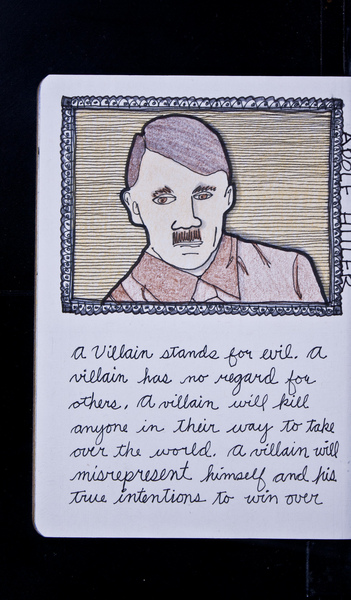 ADOLF HITLER
a Villain stands for evil. A
villain has no regard for
others. A villain will kill
anyone in their way to take
over the world. A villain will
misrepresent himself and his
true intentions to win over